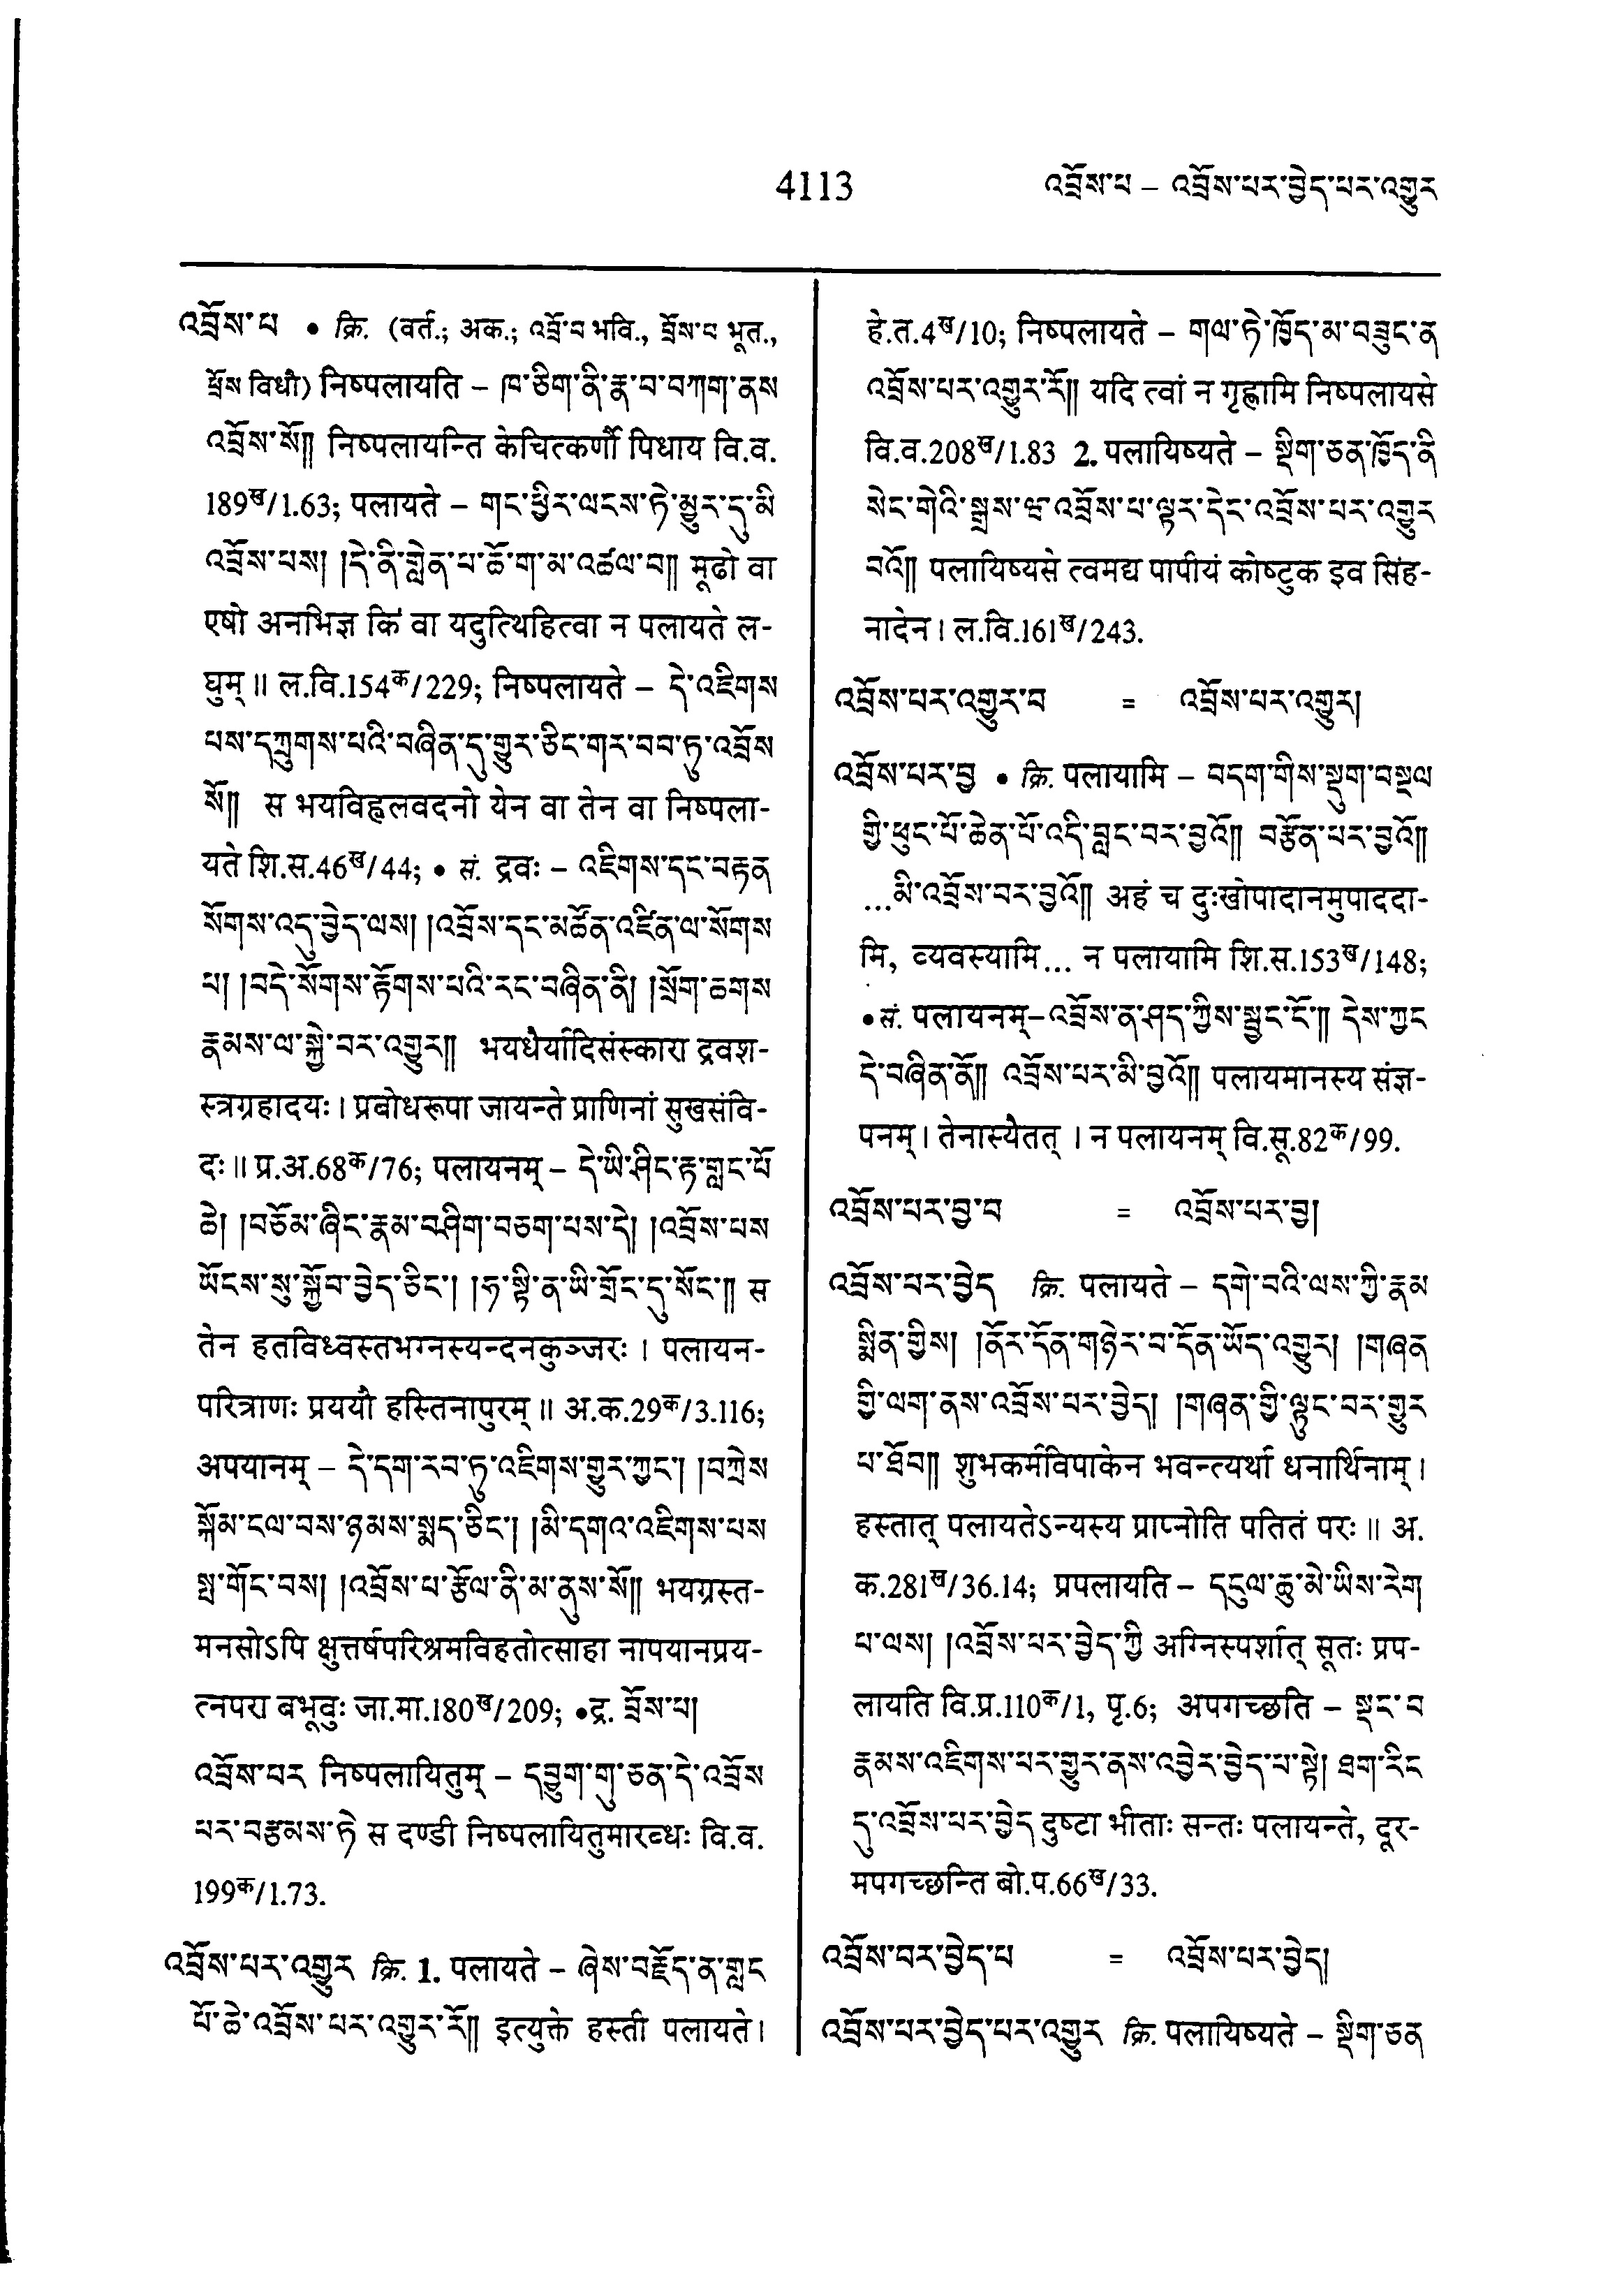 4113
འབྲོས་པ – འབྲོས་པར་བྱེད་པར་འགྱུར
འབྲོས་པ • क्रि. (वर्त.; अक.; འབྲོ་བ भवि., བྲོས་པ भूत.,
ཕྲོས विधौ) निष्पलायति – ཁ་ཅིག་ནི་རྣ་བ་བཀག་ནས
འབྲོས་སོ༎ निष्पलायन्ति केचित्कर्णौ पिधाय वि.व.
189ख/1.63; पलायते – གང་ཕྱིར་ལངས་ཏེ་མྱུར་དུ་མི
འབྲོས་པས། །དེ་ནི་གླེན་པ་ཆོ་ག་མ་འཚལ་བ༎ मूढो वा
एषो अनभिज्ञ किं वा यदुत्थिहित्वा न पलायते ल-
घुम् ॥ ल.वि.154क/229; निष्पलायते – དེ་འཇིགས
པས་དཀྲུགས་པའི་བཞིན་དུ་གྱུར་ཅིང་གར་བབ་ཏུ་འབྲོས
སོ༎ स भयविह्वलवदनो येन वा तेन वा निष्पला-
यते शि.स.46ख/44; • सं. द्रवः – འཇིགས་དང་བརྟན
སོགས་འདུ་བྱེད་ལས། །འབྲོས་དང་མཚོན་འཛིན་ལ་སོགས
པ། །བདེ་སོགས་རྟོགས་པའི་རང་བཞིན་ནི། །སྲོག་ཆགས
རྣམས་ལ་སྐྱེ་བར་འགྱུར༎ भयधैर्यादिसंस्कारा द्रवश-
स्त्रग्रहादयः । प्रबोधरूपा जायन्ते प्राणिनां सुखसंवि-
दः ॥ प्र.अ.68क/76; पलायनम् – དེ་ཡི་ཤིང་རྟ་གླང་པོ
ཆེ། །བཅོམ་ཞིང་རྣམ་བཤིག་བཅག་པས་དེ། །འབྲོས་པས
ཡོངས་སུ་སྐྱོབ་བྱེད་ཅིང༌། །ཧ་སྟི་ན་ཡི་གྲོང་དུ་སོང༌༎ स
तेन हतविध्वस्तभग्नस्यन्दनकुञ्जरः । पलायन-
परित्राणः प्रययौ हस्तिनापुरम् ॥ अ.क.29क/3.116;
अपयानम् – དེ་དག་རབ་ཏུ་འཇིགས་གྱུར་ཀྱང༌། །བཀྲེས
སྐོམ་ངལ་བས་ཉམས་སྨད་ཅིང༌། །མི་དགའ་འཇིགས་པས
སྤ་གོང་བས། །འབྲོས་པ་རྩོལ་ནི་མ་ནུས་སོ༎ भयग्रस्त-
मनसोऽपि क्षुत्तर्षपरिश्रमविहतोत्साहा नापयानप्रय-
त्नपरा बभूवुः जा.मा.180ख/209; •द्र. བྲོས་པ།
འབྲོས་པར निष्पलायितुम् – དབྱུག་གུ་ཅན་དེ་འབྲོས
པར་བརྩམས་ཏེ स दण्डी निष्पलायितुमारब्धः वि.व.
199क/1.73.
འབྲོས་པར་འགྱུར क्रि. 1. पलायते – ཞེས་བརྗོད་ན་གླང
པོ་ཆེ་འབྲོས་པར་འགྱུར་རོ༎ इत्युक्ते हस्ती पलायते ।
हे.त.4ख/10; निष्पलायते – གལ་ཏེ་ཁྱོད་མ་བཟུང་ན
འབྲོས་པར་འགྱུར་རོ༎ यदि त्वां न गृह्णामि निष्पलायसे
वि.व.208ख/1.83 2. पलायिष्यते – སྡིག་ཅན་ཁྱོད་ནི
སེང་གེའི་སྒྲས་ཝ་འབྲོས་པ་ལྟར་དེང་འབྲོས་པར་འགྱུར
བའོ༎ पलायिष्यसे त्वमद्य पापीयं कोष्टुक इव सिंह-
नादेन । ल.वि.161ख/243.
འབྲོས་པར་འགྱུར་བ = འབྲོས་པར་འགྱུར།
འབྲོས་པར་བྱ • क्रि. पलायामि – བདག་གིས་སྡུག་བསྔལ
གྱི་ཕུང་པོ་ཆེན་པོ་འདི་བླང་བར་བྱའོ༎ བརྩོན་པར་བྱའོ༎
...མི་འབྲོས་བར་བྱའོ༎ अहं च दुःखोपादानमुपाददा-
मि, व्यवस्यामि... न पलायामि शि.स.153ख/148;
•सं. पलायनम्–འབྲོས་ན་ཤད་ཀྱིས་སྦྱང་ངོ༌༎ དེས་ཀྱང
དེ་བཞིན་ནོ༎ འབྲོས་པར་མི་བྱའོ༎ पलायमानस्य संज्ञ-
पनम् । तेनास्यैतत् । न पलायनम् वि.सू.82क/99.
འབྲོས་པར་བྱ་བ = འབྲོས་པར་བྱ།
འབྲོས་པར་བྱེད क्रि. पलायते – དགེ་བའི་ལས་ཀྱི་རྣམ
སྨིན་གྱིས། །ནོར་དོན་གཉེར་བ་དོན་ཡོད་འགྱུར། །གཞན
གྱི་ལག་ནས་འབྲོས་པར་བྱེད། །གཞན་གྱི་ལྟུང་བར་གྱུར
པ་ཐོབ༎ शुभकर्मविपाकेन भवन्त्यर्था धनार्थिनाम् ।
हस्तात् पलायतेऽन्यस्य प्राप्नोति पतितं परः ॥ अ.
क.281ख/36.14; प्रपलायति – དངུལ་ཆུ་མེ་ཡིས་རེག
པ་ལས། །འབྲོས་པར་བྱེད་ཀྱི अग्निस्पर्शात् सूतः प्रप-
लायति वि.प्र.110क/1, पृ.6; अपगच्छति – སྡང་བ
རྣམས་འཇིགས་པར་གྱུར་ནས་འབྱེར་བྱེད་པ་སྟེ། ཐག་རིང
དུ་འབྲོས་པར་བྱེད दुष्टा भीताः सन्तः पलायन्ते, दूर-
मपगच्छन्ति बो.प.66ख/33.
འབྲོས་བར་བྱེད་པ = འབྲོས་པར་བྱེད།
འབྲོས་པར་བྱེད་པར་འགྱུར क्रि. पलायिष्यते – སྡིག་ཅན